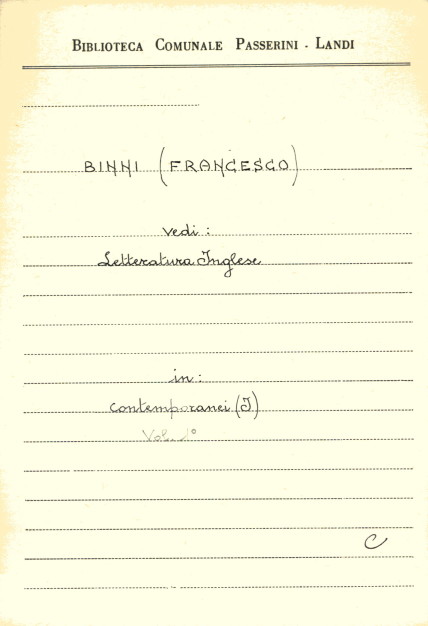 BIBLIOTECA COMUNALE PASSERINI - LANDI
BINNI (FRANCESCO)
vedi:
Letteratura Inglese
in:
Contemporanei (I)
C